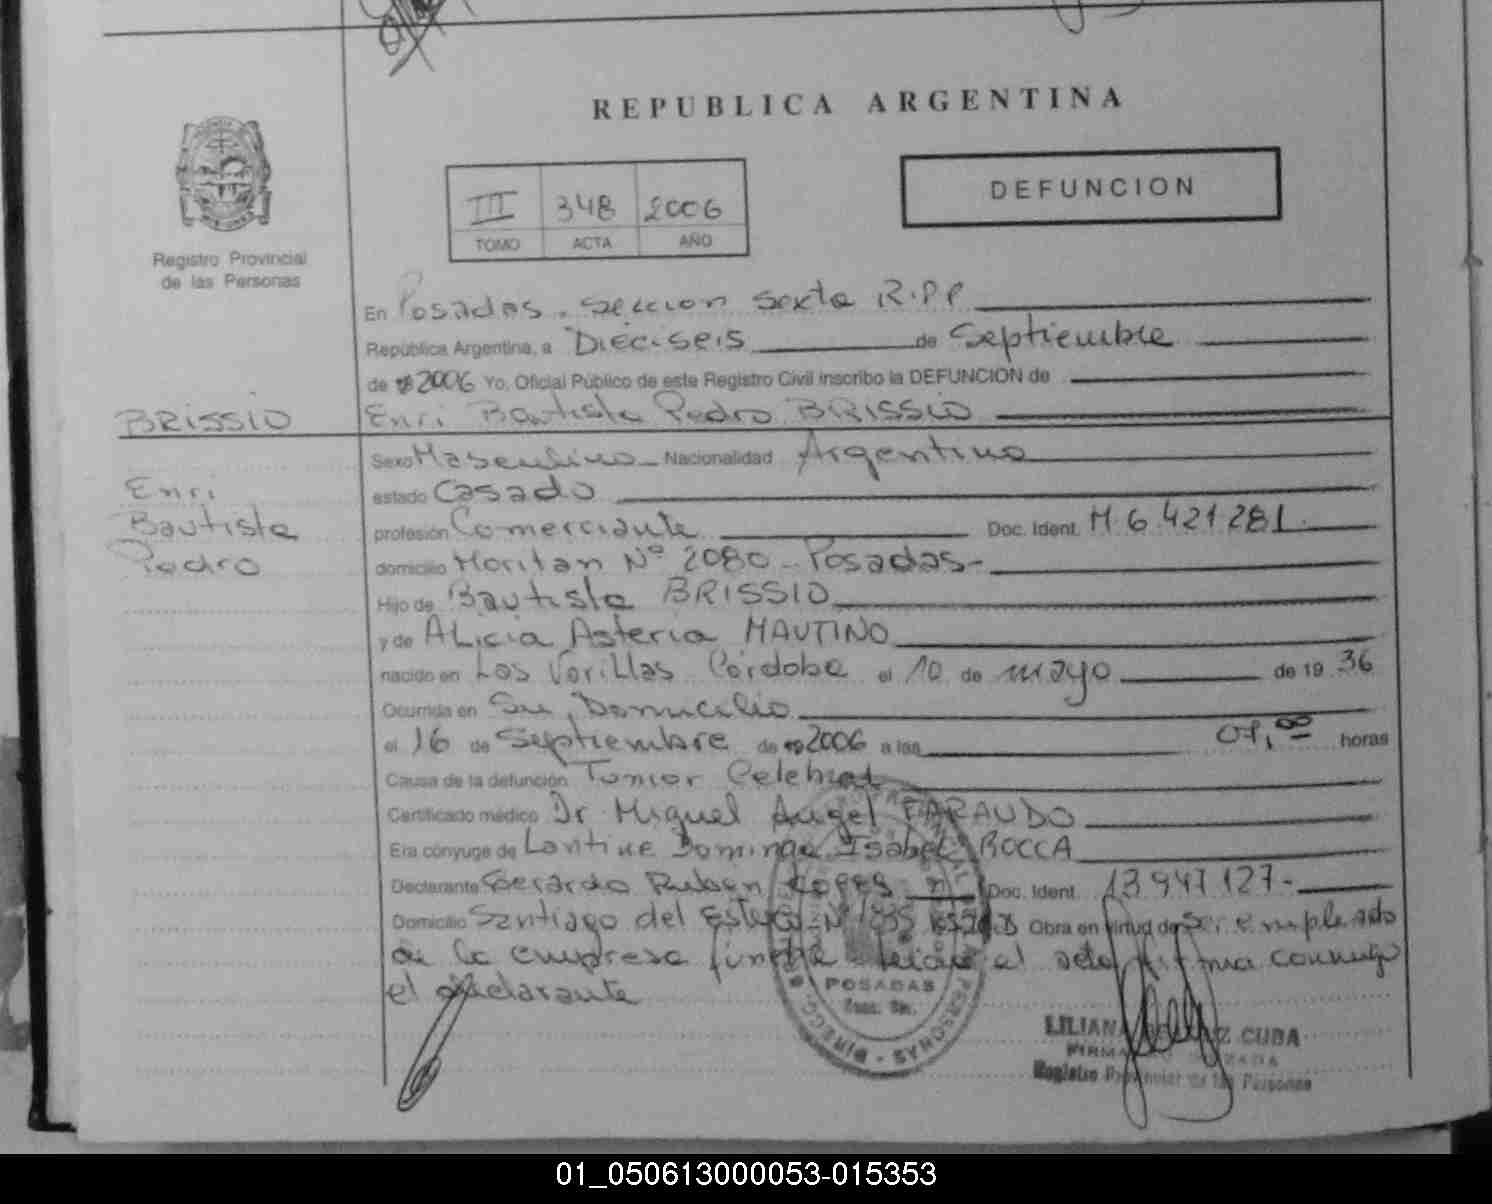 REPUBLICA ARGENTINA
DEFUNCION
III 348 2006
TOMO ACTA AÑO
Registro Provincial
de las Personas
En Posadas. Seccion Sexta R.P.P
República Argentina, a Dieciseis de Septiembre
de 2006 Yo, Oficial Público de este Registro Civil inscribo la DEFUNCION de
BRISSIO
Enri Bautista Pedro BRISSIO
Sexo Masculino Nacionalidad Argentino
Enri
estado Casado
Bautista
profesión Comerciante Doc. Ident. M.6.421.281
Pedro
domicilio Moritan Nº 2080 - Posadas-
Hijo de Bautista BRISSIO
y de ALicia Asteria MAUTINO
nacido en Las Varillas Córdoba el 10 de mayo de 19 36
Ocurrida en Su Domicilio
el 16 de Septiembre de 2006 a las 07,00 horas
Causa de la defunción Tumor Celebral
Certificado médico Dr Miguel Angel FARAUDO
Era cónyuge de Dominga Isabel ROCCA
Declarante Gerardo Ruben Doc. Ident. 13.947.127-
Domicilio Santiago del Estero Nº Obra en virtud de Ser empleado
de la empresa el acta firma conmigo
el declarante
POSADAS
LILIANA CUBA
Registro Provincial de las Personas
01_050613000053-015353